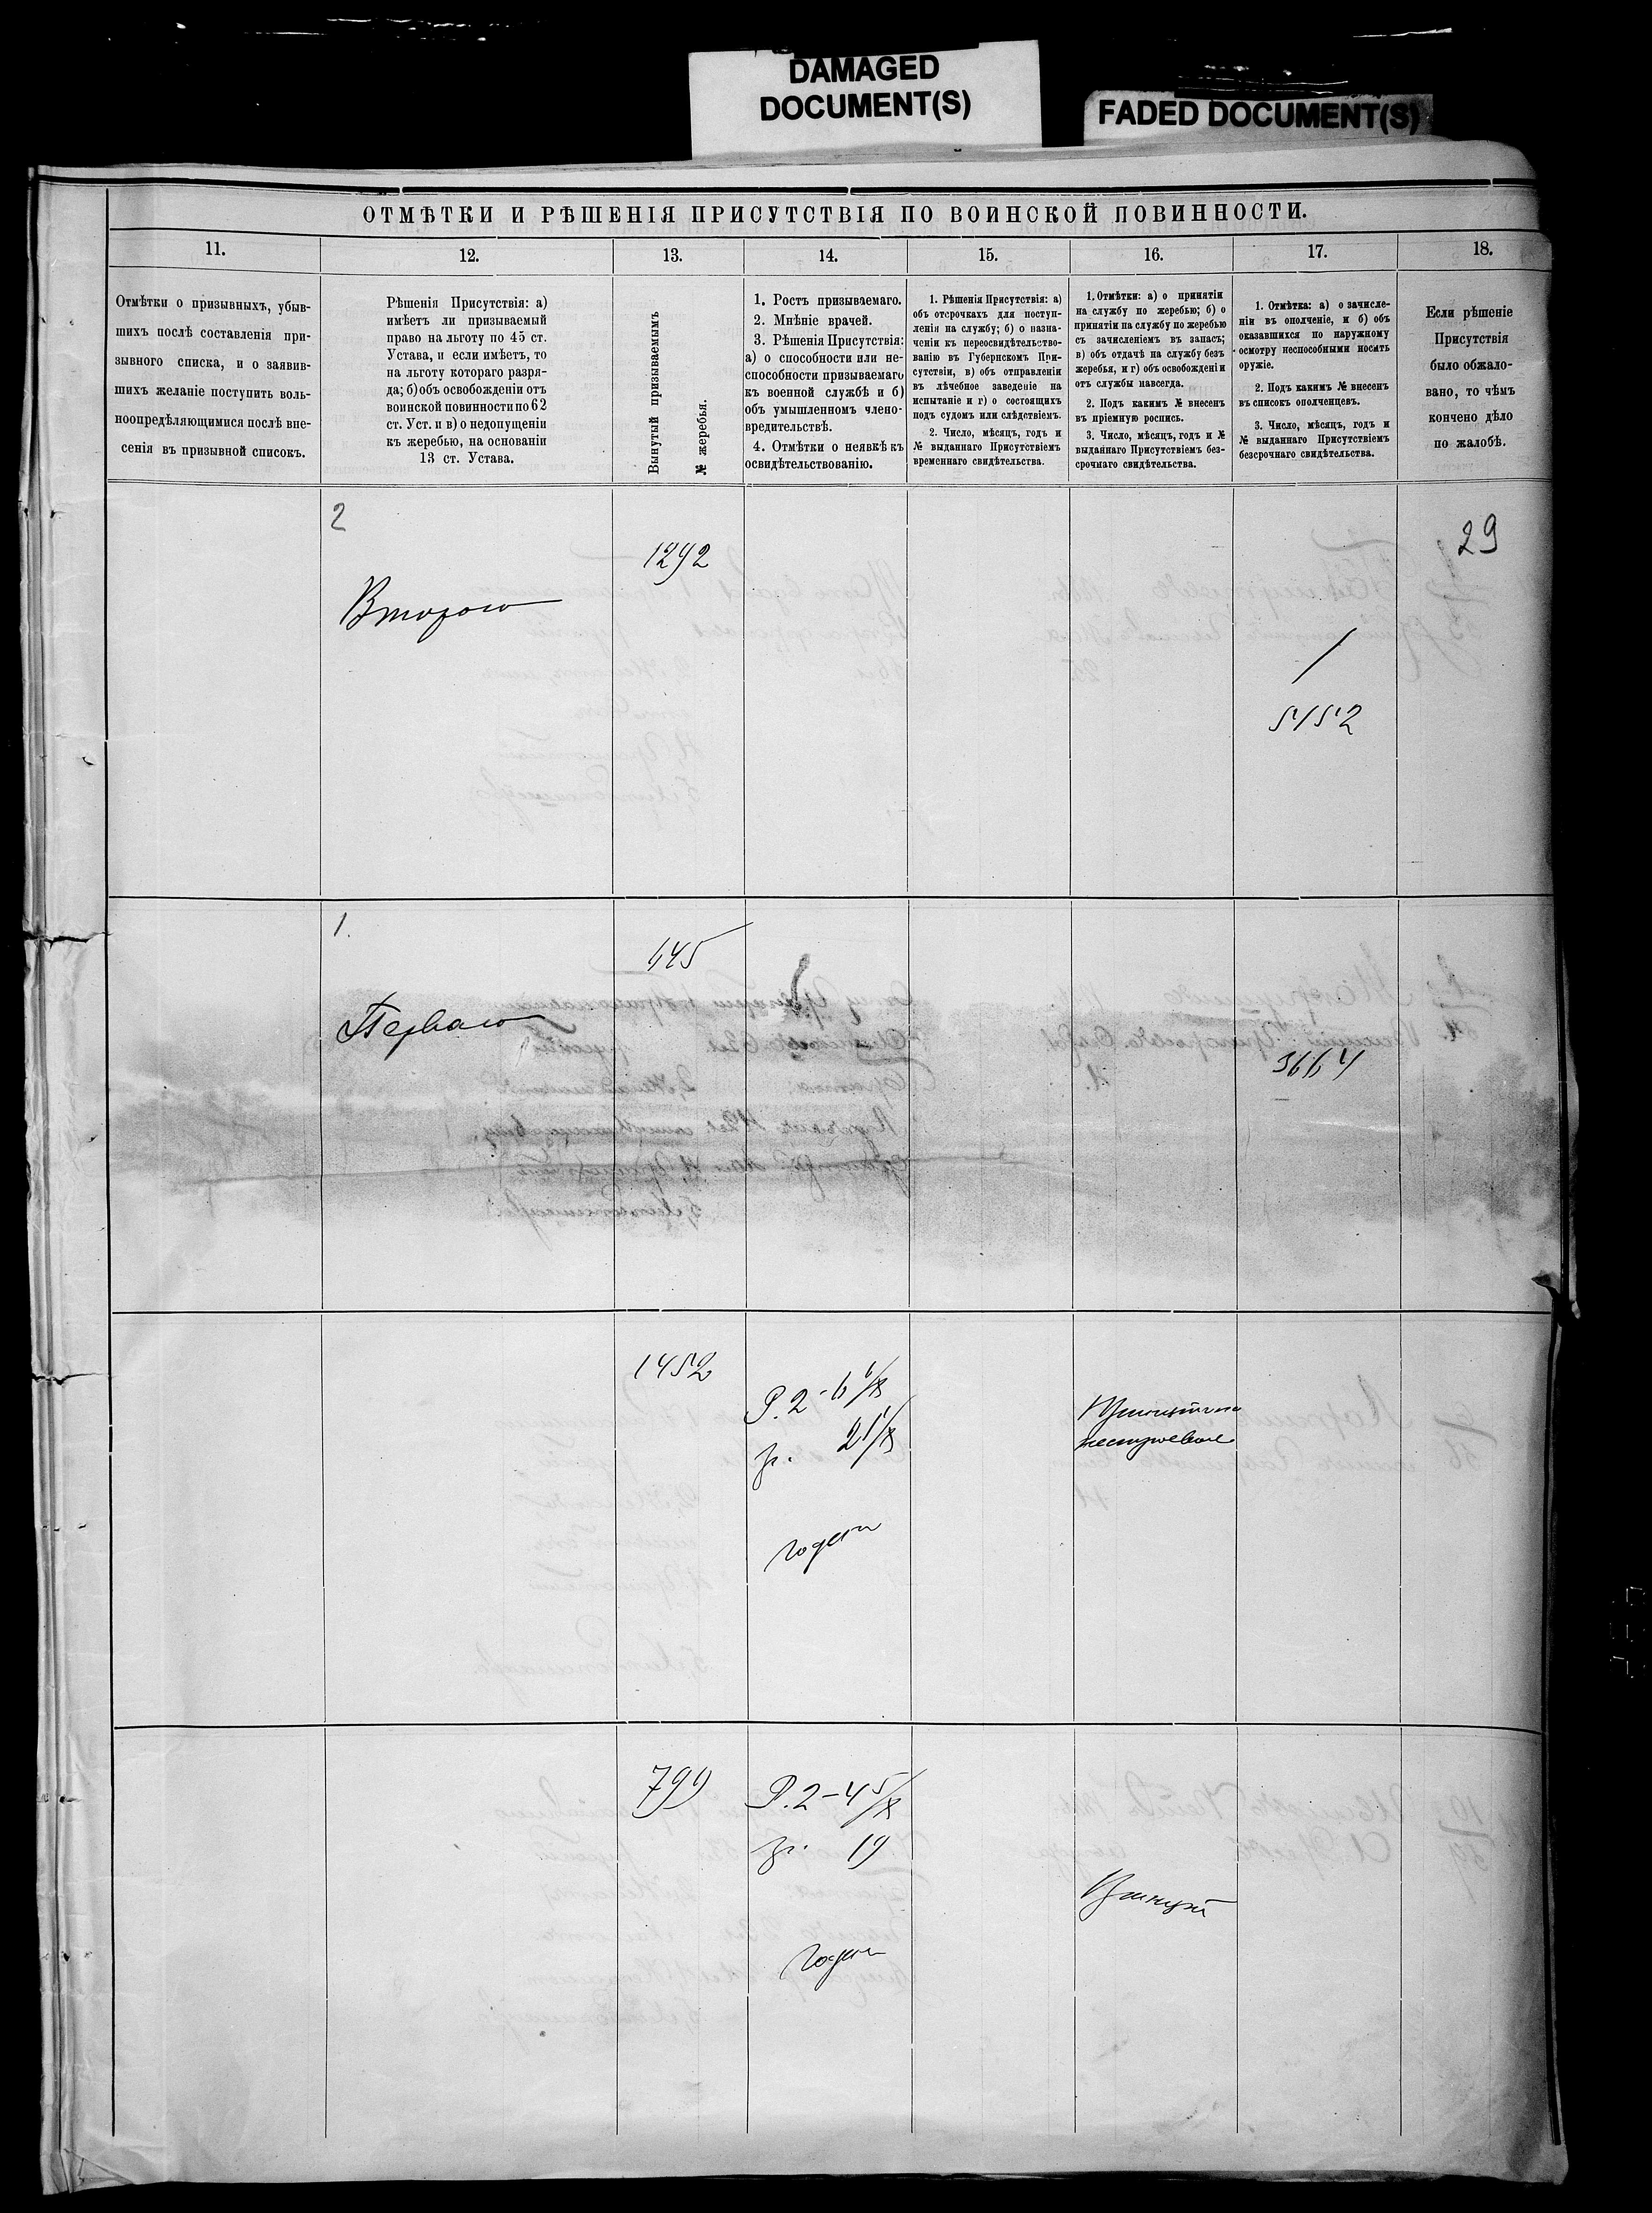 DAMAGED
DOCUMENT(S)
FADED DOCUMENT(S)
ОТМѢТКИ И РѢШЕНІЯ ПРИСУТСТВІЯ ПО ВОИНСКОЙ ПОВИННОСТИ.
11.
12.
13.
14.
15.
16.
17.
18.
Отмѣтки о призывныхъ, убыв-
шихъ послѣ составленія при-
зывного списка, и о заявив-
шихъ желаніе поступить воль-
ноопредѣляющимися послѣ вне-
сенія въ призывной списокъ.
Рѣшенія Присутствія: а)
имѣетъ ли призываемый
право на льготу по 45 ст.
Устава, и если имѣетъ, то
на льготу котораго разря-
да; б) объ освобожденіи отъ
воинской повинности по 62
ст. Уст. и в) о недопущеніи
къ жеребью, на основаніи
13 ст. Устава.
Вынутый призываемымъ
№ жеребья.
1. Ростъ призываемаго.
2. Мнѣніе врачей.
3. Рѣшенія Присутствія:
а) о способности или не-
способности призываемаго
къ военной службѣ и б)
объ умышленномъ члено-
вредительствѣ.
4. Отмѣтки о неявкѣ къ
освидѣтельствованію.
1. Рѣшенія Присутствія: а)
объ отсрочкахъ для поступ-
ленія на службу; б) о назна-
ченіи къ переосвидѣтельство-
ванію въ Губернскомъ При-
сутствіи, в) объ отправленіи
въ лѣчебное заведеніе на
испытаніе и г) о состоящихъ
подъ судомъ или слѣдствіемъ.
2. Число, мѣсяцъ, годъ и
№ выданнаго Присутствіемъ
временнаго свидѣтельства.
1. Отмѣтки: а) о принятіи
на службу по жеребью; б) о
принятіи на службу по жеребью
съ зачисленіемъ въ запасъ;
в) объ отдачѣ на службу безъ
жеребья, и г) объ освобожденіи
отъ службы навсегда.
2. Подъ какимъ № внесенъ
въ пріемную роспись.
3. Число, мѣсяцъ, годъ и №
выданнаго Присутствіемъ без-
срочнаго свидѣтельства.
1. Отмѣтка: а) о зачисле-
ніи въ ополченіе, и б) объ
оказавшихся по наружному
осмотру неспособными носить
оружіе.
2. Подъ какимъ № внесенъ
въ списокъ ополченцевъ.
3. Число, мѣсяцъ, годъ и
№ выданнаго Присутствіемъ
безсрочнаго свидѣтельства.
Если рѣшеніе
Присутствія
было обжало-
вано, то чѣмъ
кончено дѣло
по жалобѣ.
2
1292
29
Второго
/
5452
1.
445
Перваго
3664
1452
Р. 2-6 6/8
гр. 21 1/8
годен
799
Р. 2-4 5/8
гр. 19
Принят
годен